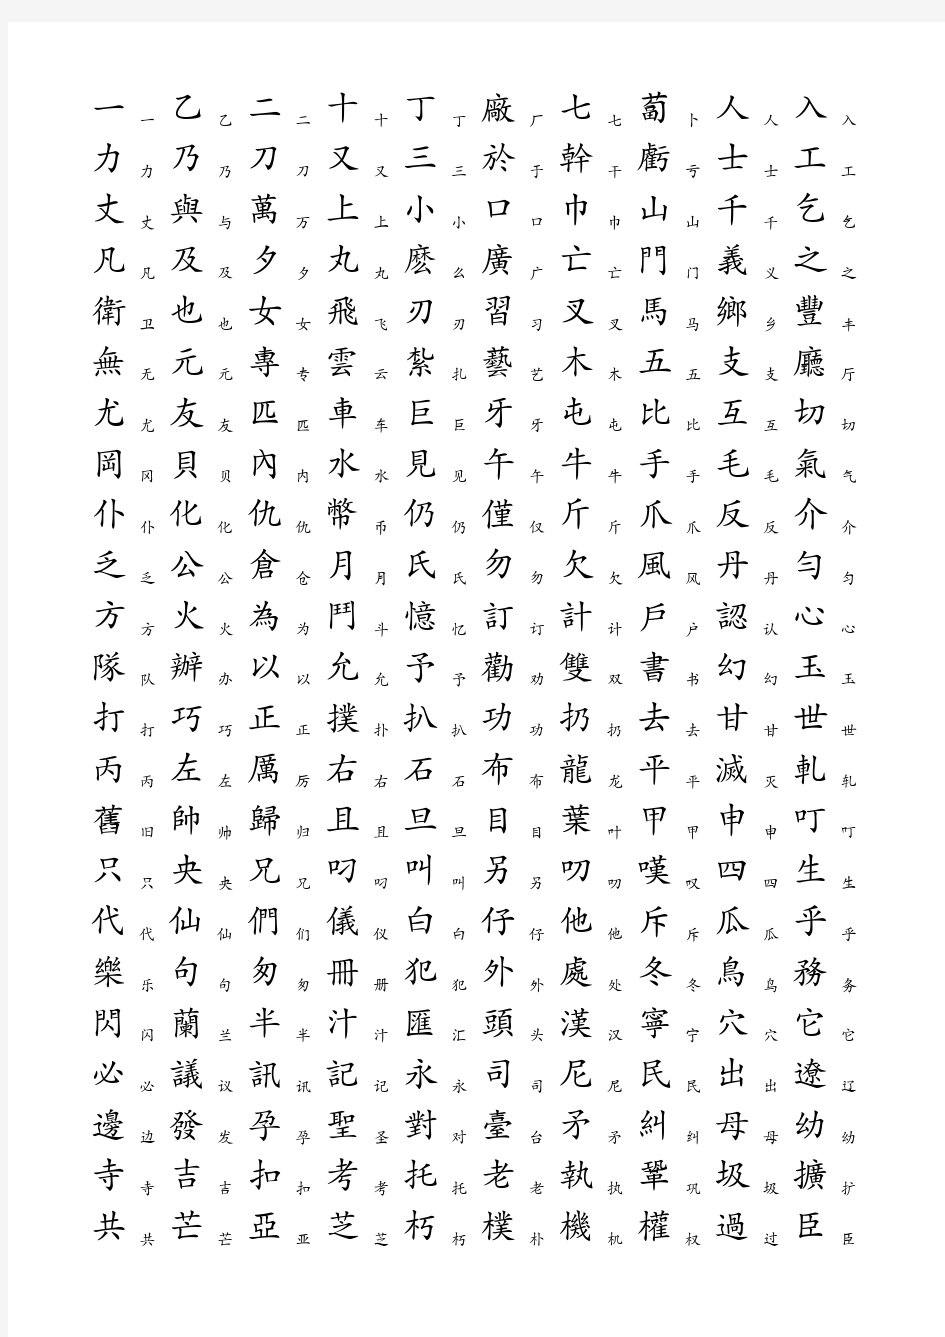 一一乙乙二二十十丁丁廠厂七七蔔卜人人入入
力力乃乃刀刀又又三三於于幹干虧亏士士工工
丈丈與与萬万上上小小口口巾巾山山千千乞乞
凡凡及及夕夕丸丸麽么廣广亡亡門门義义之之
衛卫也也女女飛飞刃刃習习叉叉馬马鄉乡豐丰
無无元元專专雲云紮扎藝艺木木五五支支廳厅
尤尤友友匹匹車车巨巨牙牙屯屯比比互互切切
岡冈貝贝內内水水見见午午牛牛手手毛毛氣气
仆仆化化仇仇幣币仍仍僅仅斤斤爪爪反反介介
乏乏公公倉仓月月氏氏勿勿欠欠風风丹丹勻匀
方方火火為为鬥斗憶忆訂订計计戶户認认心心
隊队辦办以以允允予予勸劝雙双書书幻幻玉玉
打打巧巧正正撲扑扒扒功功扔扔去去甘甘世世
丙丙左左厲厉右右石石布布龍龙平平滅灭軋轧
舊旧帥帅歸归且且旦旦目目葉叶甲甲申申叮叮
只只央央兄兄叼叼叫叫另另叨叨嘆叹四四生生
代代仙仙們们儀仪白白仔仔他他斥斥瓜瓜乎乎
樂乐句句匆匆冊册犯犯外外處处冬冬鳥鸟務务
閃闪蘭兰半半汁汁匯汇頭头漢汉寧宁穴穴它它
必必議议訊讯記记永永司司尼尼民民出出遼辽
邊边發发孕孕聖圣對对臺台矛矛糾纠母母幼幼
寺寺吉吉扣扣考考托托老老執执鞏巩圾圾擴扩
共共芒芒亞亚芝芝朽朽樸朴機机權权過过臣臣